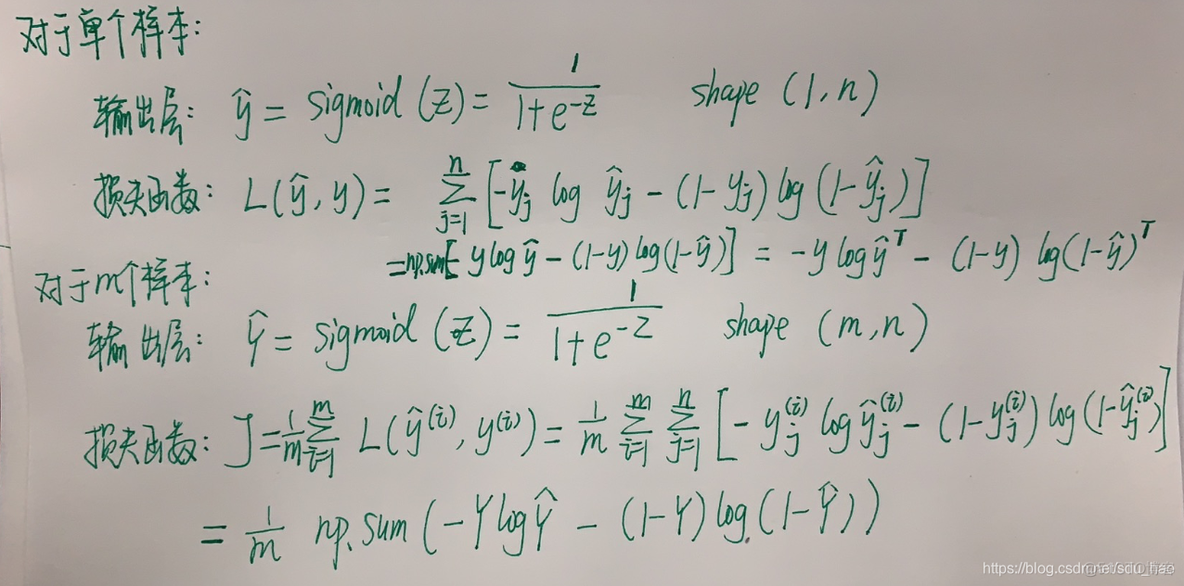 对于单个样本:
输出层: ŷ = sigmoid (z) = 1/(1+e^{-z}) shape (1, n)
损失函数: L(ŷ, y) = \sum_{j=1}^{n} [-y_j log ŷ_j - (1-y_j) log (1-ŷ_j)]
=np.sum[- y log ŷ - (1-y) log(1-ŷ)] = -y log ŷ^T - (1-y) log(1-ŷ)^T
对于m个样本:
输出层: Ŷ = sigmoid (Z) = 1/(1+e^{-Z}) shape (m, n)
损失函数: J = \frac{1}{m} \sum_{i=1}^{m} L(ŷ^{(i)}, y^{(i)}) = \frac{1}{m} \sum_{i=1}^{m} \sum_{j=1}^{n} [- y_j^{(i)} log ŷ_j^{(i)} - (1-y_j^{(i)}) log (1-ŷ_j^{(i)})]
= \frac{1}{m} np.sum (-Y log Ŷ - (1-Y) log (1-Ŷ))
https://blog.csdn.net/sdu_hao